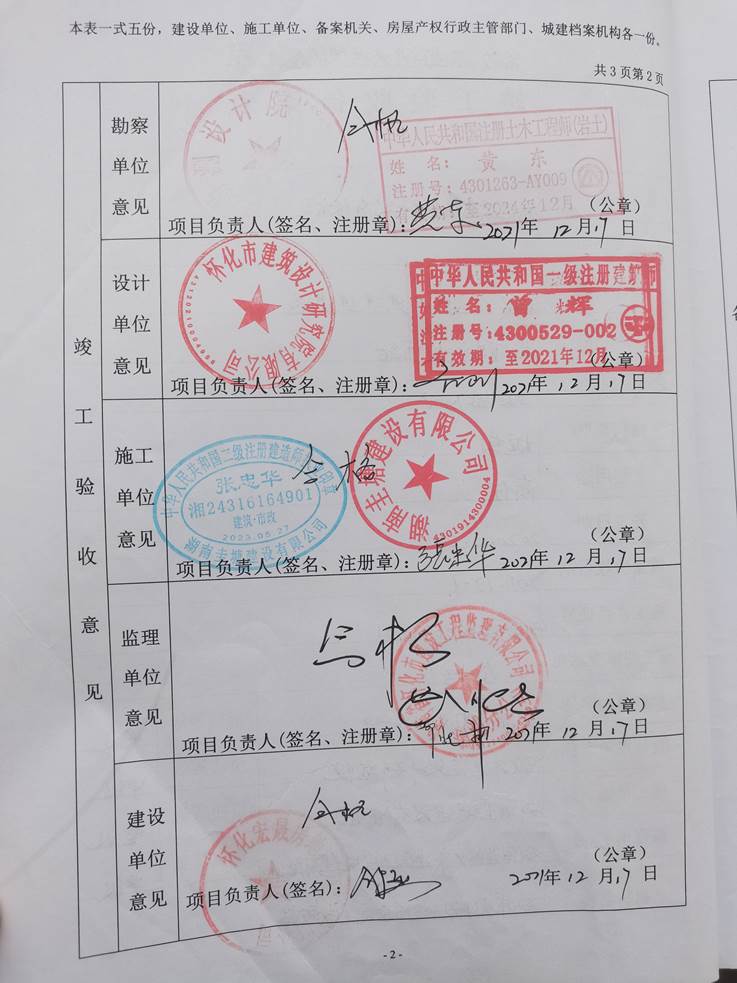 本表一式五份，建设单位、施工单位、备案机关、房屋产权行政主管部门、城建档案机构各一份。
共3页第2页
竣工验收意见
勘察单位意见
设计院
合格
中华人民共和国注册土木工程师(岩土)
姓 名： 黄 东
注册号：4301263-AY009
有 至2024年12月
（公章）
项目负责人(签名、注册章)：黄东 2021年 12月17日
设计单位意见
怀化市建筑设计研究院有限公司
中华人民共和国一级注册建筑师
姓 名：曾 辉
注册号：4300529-002
有效期：至2021年12月
（公章）
项目负责人(签名、注册章)： 2021年 12月17日
施工单位意见
中华人民共和国二级注册建造师执业印章
张忠华
湘24316164901
建筑·市政
2023.05.27
湖南圭塘建设有限公司
合格
湖南圭塘建设有限公司
4301914300004
（公章）
项目负责人(签名、注册章)：张忠华 2021年 12月17日
监理单位意见
合格
怀化市 工程监理有限公司
（公章）
项目负责人(签名、注册章)： 2021年 12月17日
建设单位意见
合格
怀化宏晟房 公司
（公章）
项目负责人(签名)： 2021年 12月17日
-2-